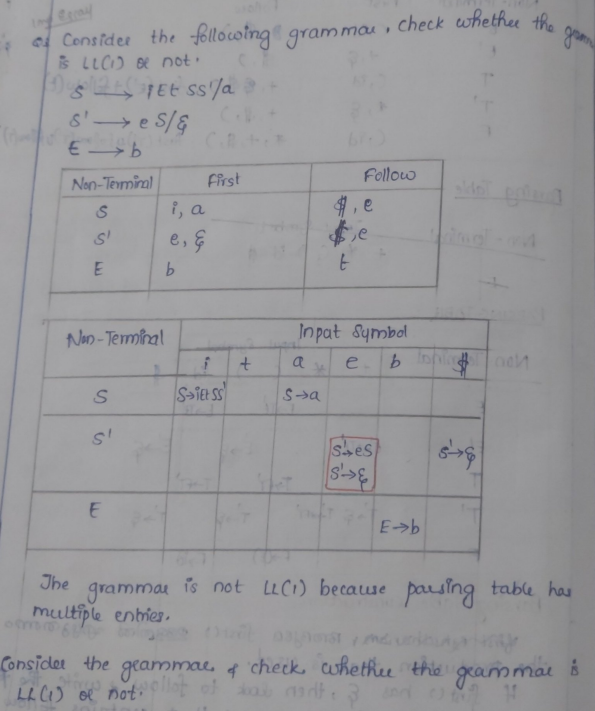 Q) Consider the following grammar, check whether the
is LL(1) or not.
S → iEtSS'/a
S' → eS/ε
E → b
Non-Terminal First Follow
S i, a $, e
S' e, ε $, e
E b t
Non-Terminal Input Symbol
i t a e b $
S S→iEtSS' S→a
S' S'→eS S'→ε
S'→ε
E E→b
The grammar is not LL(1) because parsing table has
multiple entries.
Consider the grammar & check whether the grammar is
LL(1) or not.